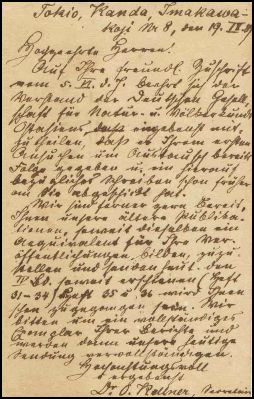 Tokio, Kanda, Imakawa-
koji Nr 8, den 19. IX. 87
Hochgeehrte Herren.
Auf Ihre freundl. Zuschrift
vom 5. VI. d. J. beehrt sich der
Vorstand der Deutschen Gesell-
schaft für Natur- u. Völkerkunde
Ostasiens, ergebenst mit-
zutheilen, dass er Ihrem ersten
Ansuchen um Austausch bereits
Folge gegeben u. ein hierauf
bezügliches Schreiben schon früher
an Sie abgeschickt hat.
Wir sind ferner gern bereit,
Ihnen unsere ältere Publika-
tionen, soweit dieselben ein
Aequivalent für Ihre Ver-
öffentlichungen bilden, zuzu-
stellen und senden heut. den
IV Bd. soweit erschienen (Heft
31-34) Heft 35 u. 36 wird Ihnen
schon zugegangen sein. Wir
bitten um ein vollständiges
Exemplar Ihrer Berichte und
werden dann unsere heutige
Sendung vervollständigen.
Hochachtungsvoll
ergebenst
Dr. O. Kellner, Secretair